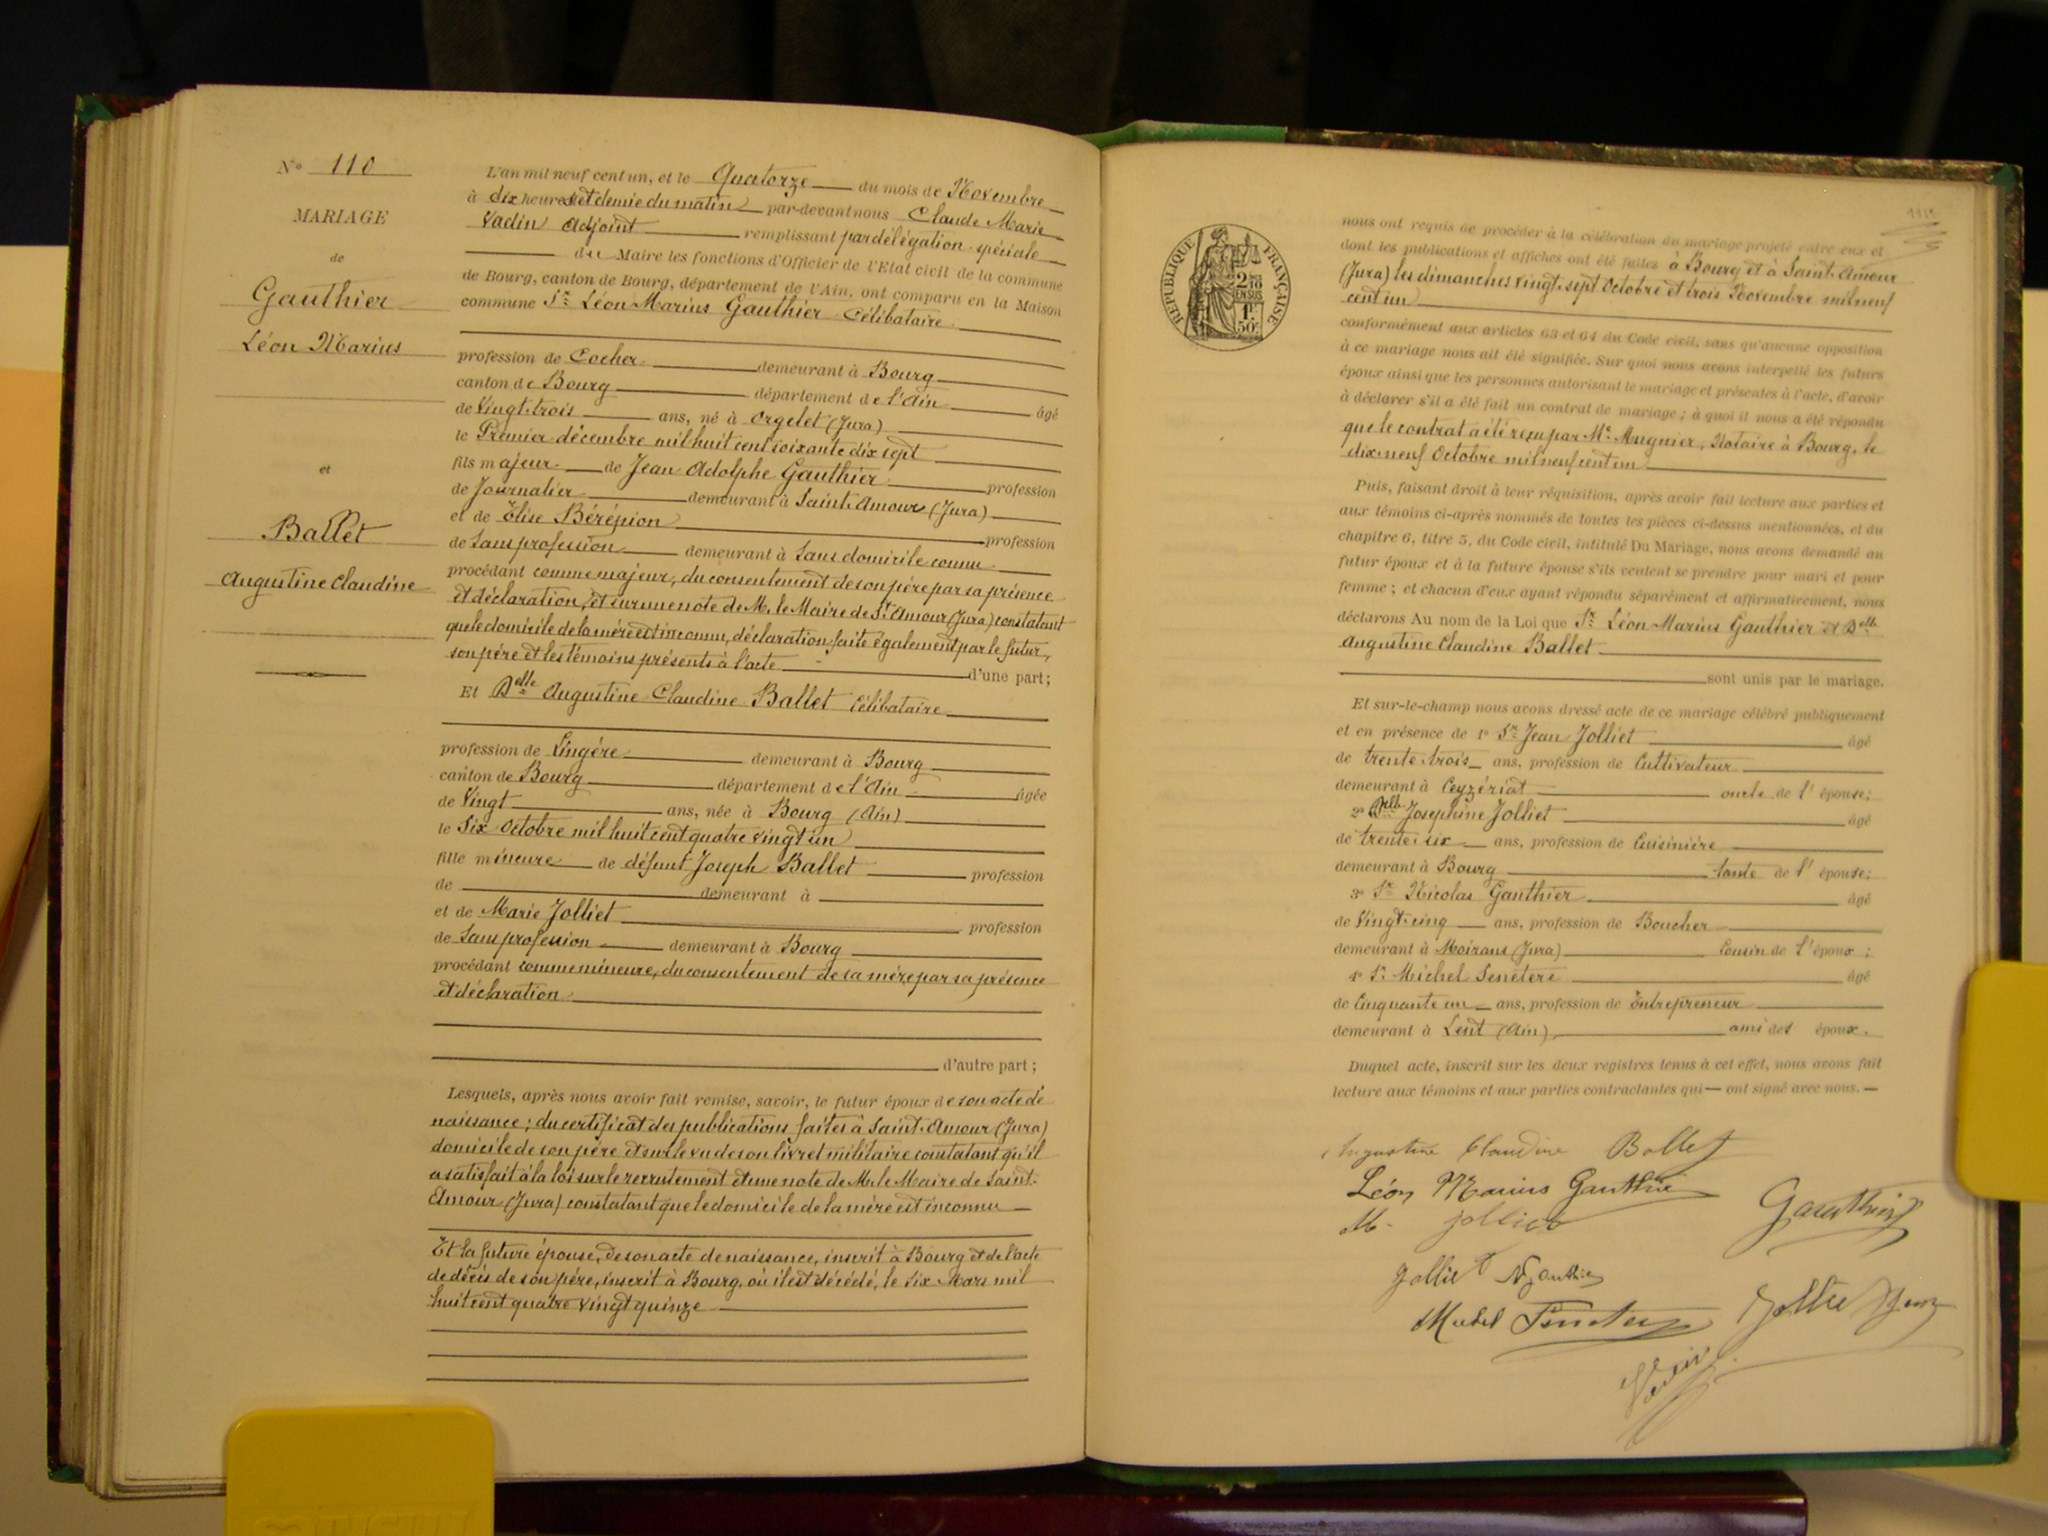 N° 110
MARIAGE
de
Gauthier
Léon Marius
et
Ballet
Augustine Claudine
L'an mil neuf cent un, et le Quatorze du mois de Novembre
à dix heures et demie du matin par-devant nous Claude Marie
Vadin Adjoint remplissant par délégation spéciale
du Maire les fonctions d'Officier de l'Etat civil de la commune
de Bourg, canton de Bourg, département de l'Ain, ont comparu en la Maison
commune Sr Léon Marius Gauthier Célibataire
profession de Cocher demeurant à Bourg
canton de Bourg département de l'Ain âgé
de Vingt-trois ans, né à Orgelet (Jura)
le Premier décembre mil huit cent soixante dix sept
fils majeur de Jean Adolphe Gauthier profession
de Journalier demeurant à Saint-Amour (Jura)
et de Elise Bérépion profession
de Sans profession demeurant à Sans domicile connu
procédant comme majeur, du consentement de son père par sa présence
et déclaration, et sur une note de M. le Maire de St Amour (Jura) constatant
que le domicile de la mère est inconnu, déclaration faite également par le futur,
son père et les témoins présents à l'acte d'une part;
Et Delle Augustine Claudine Ballet Célibataire
profession de Lingère demeurant à Bourg
canton de Bourg département de l'Ain âgée
de Vingt ans, née à Bourg (Ain)
le Six Octobre mil huit cent quatre vingt un
fille mineure de défunt Joseph Ballet profession
de demeurant à
et de Marie Jolliet profession
de Sans profession demeurant à Bourg
procédant comme mineure, du consentement de sa mère par sa présence
et déclaration
d'autre part;
Lesquels, après nous avoir fait remise, savoir, le futur époux de son acte de
naissance; du certificat des publications faites à Saint-Amour (Jura)
domicile de son père et sur le vu de son livret militaire constatant qu'il
a satisfait à la loi sur le recrutement et une note de M. le Maire de Saint-
Amour (Jura) constatant que le domicile de la mère est inconnu
Et la future épouse, de son acte de naissance, inscrit à Bourg et de l'acte
de décès de son père, inscrit à Bourg, où il est décédé, le Six Mars mil
huit cent quatre vingt quinze
RÉPUBLIQUE FRANÇAISE
2 10es
EN SUS
1F
50c
nous ont requis de procéder à la célébration du mariage projeté entre eux et
dont les publications et affiches ont été faites à Bourg et à Saint-Amour
(Jura) les dimanches vingt-sept Octobre et trois Novembre mil neuf
cent un
conformément aux articles 63 et 64 du Code civil, sans qu'aucune opposition
à ce mariage nous ait été signifiée. Sur quoi nous avons interpellé les futurs
époux ainsi que les personnes autorisant le mariage et présentes à l'acte, d'avoir
à déclarer s'il a été fait un contrat de mariage; à quoi il nous a été répondu
que le contrat a été reçu par Me Mugnier, Notaire à Bourg, le
dix neuf Octobre mil neuf cent un
Puis, faisant droit à leur réquisition, après avoir fait lecture aux parties et
aux témoins ci-après nommés de toutes les pièces ci-dessus mentionnées, et du
chapitre 6, titre 5, du Code civil, intitulé Du Mariage, nous avons demandé au
futur époux et à la future épouse s'ils veulent se prendre pour mari et pour
femme; et chacun d'eux ayant répondu séparément et affirmativement, nous
déclarons Au nom de la Loi que Sr Léon Marius Gauthier et Delle
Augustine Claudine Ballet
sont unis par le mariage.
Et sur-le-champ nous avons dressé acte de ce mariage célébré publiquement
et en présence de 1° Sr Jean Jolliet âgé
de trente trois ans, profession de Cultivateur
demeurant à Ceyzériat oncle de l'épouse;
2° Delle Josephine Jolliet âgé
de trente six ans, profession de Cuisinière
demeurant à Bourg tante de l'épouse;
3° Sr Nicolas Gauthier âgé
de Vingt-cinq ans, profession de Boucher
demeurant à Moirans (Jura) Cousin de l'époux;
4° Sr Michel Senetere âgé
de Cinquante un ans, profession de Entrepreneur
demeurant à Lent (Ain) ami des époux.
Duquel acte, inscrit sur les deux registres tenus à cet effet, nous avons fait
lecture aux témoins et aux parties contractantes qui ont signé avec nous.
Augustine Claudine Ballet
Léon Marius Gauthier
Gauthier
M. Jolliet
Jolliet N Gauthier
Michel Senetere
Jollie Jean
Vadin